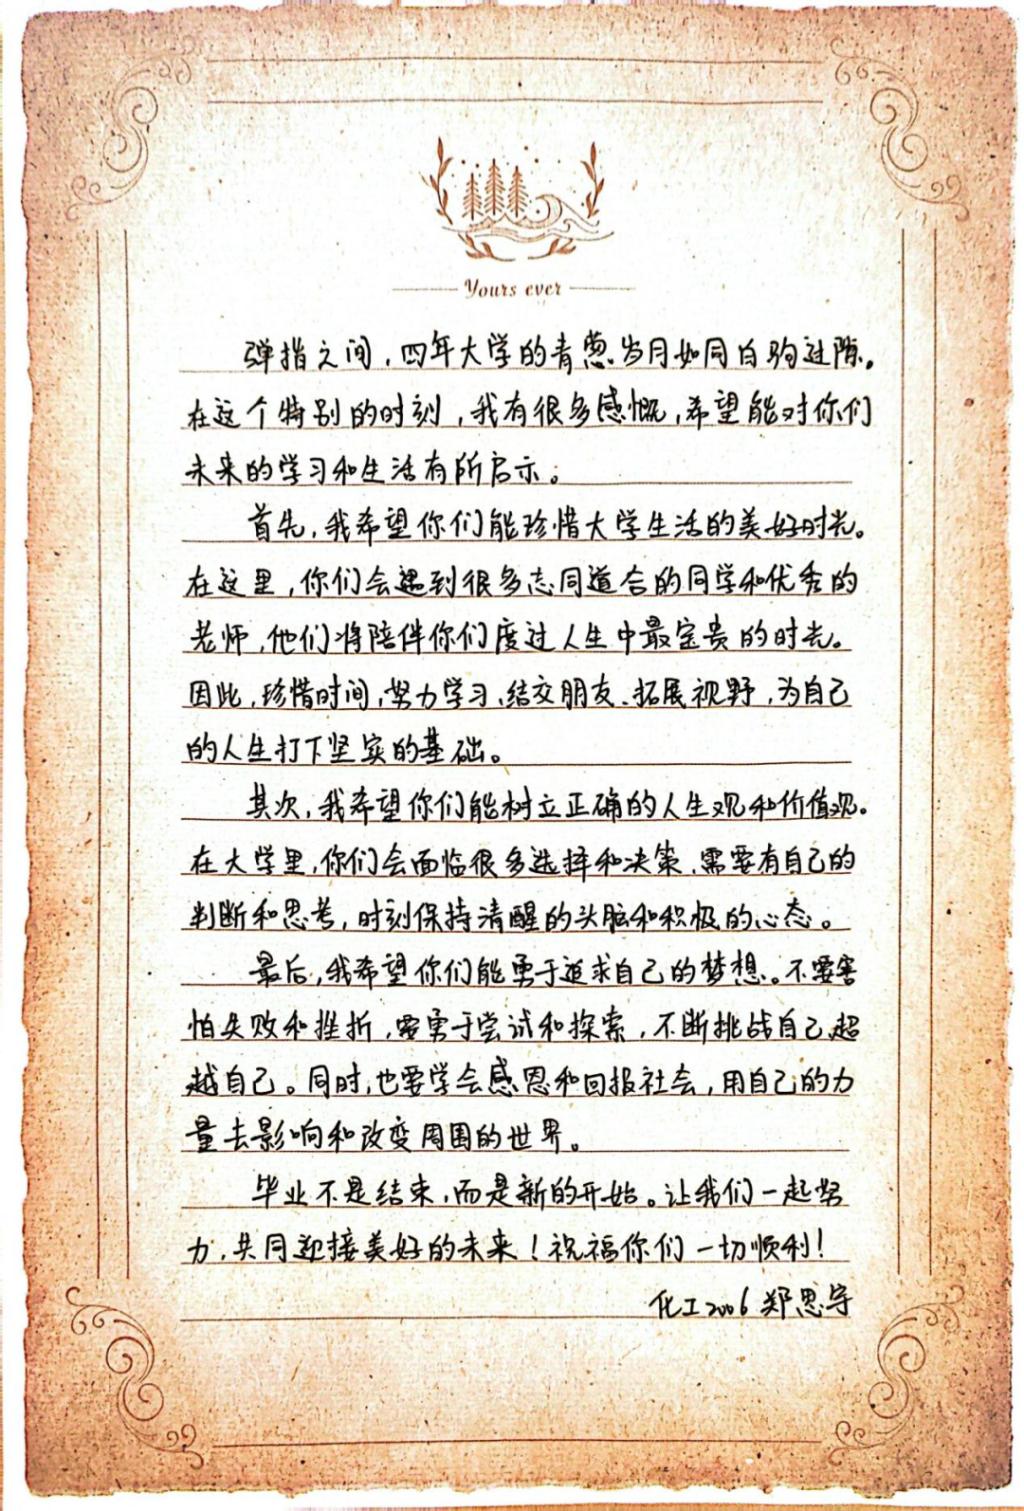 Yours ever
弹指之间，四年大学的青葱岁月如同白驹过隙。
在这个特别的时刻，我有很多感慨，希望能对你们
未来的学习和生活有所启示。
首先，我希望你们能珍惜大学生活的美好时光。
在这里，你们会遇到很多志同道合的同学和优秀的
老师，他们将陪伴你们度过人生中最宝贵的时光。
因此，珍惜时间，努力学习、结交朋友、拓展视野，为自己
的人生打下坚实的基础。
其次，我希望你们能树立正确的人生观和价值观。
在大学里，你们会面临很多选择和决策，需要有自己的
判断和思考，时刻保持清醒的头脑和积极的心态。
最后，我希望你们能勇于追求自己的梦想。不要害
怕失败和挫折，要勇于尝试和探索，不断挑战自己、超
越自己。同时，也要学会感恩和回报社会，用自己的力
量去影响和改变周围的世界。
毕业不是结束，而是新的开始。让我们一起努
力，共同迎接美好的未来！祝福你们一切顺利！
化工2006 郑思宇